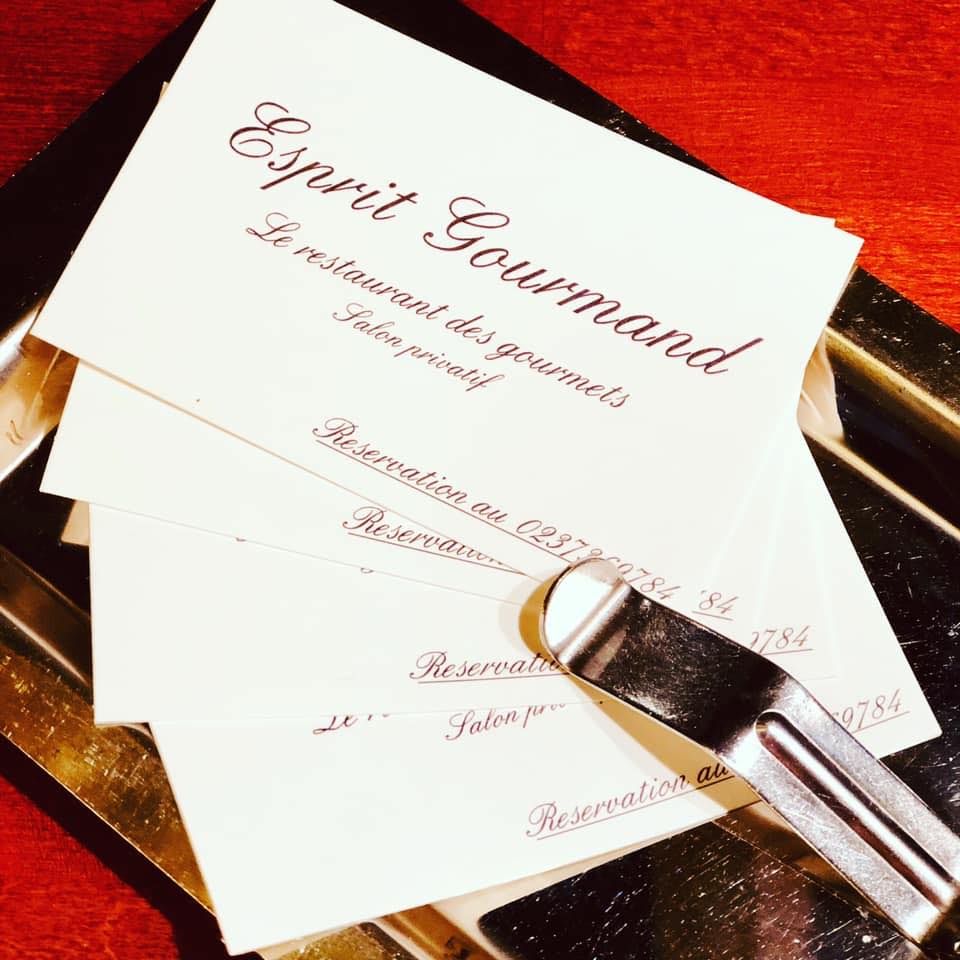 Esprit Gourmand
Le restaurant des gourmets
Salon privatif
Reservation au 0237369784
'84
Reservation
9784
Reservati
Salon pri
69784
Reservation au